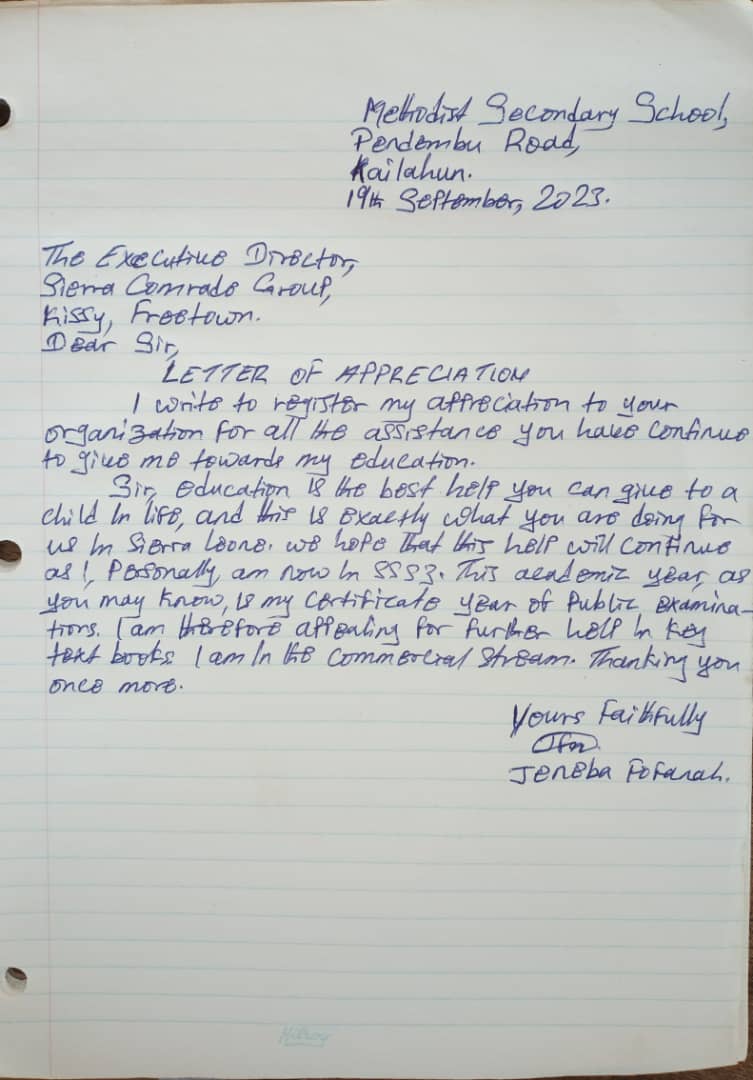 Methodist Secondary School,
Pendembu Road,
Kailahun.
19th September, 2023.
The Executive Director,
Sierra Comrade Group,
Kissy, Freetown.
Dear Sir,
LETTER OF APPRECIATION
I write to register my appreciation to your
organization for all the assistance you have continue
to give me towards my education.
Sir, education is the best help you can give to a
child in life, and this is exactly what you are doing for
us in Sierra Leone. we hope that this help will continue
as I, Personally, am now in SSS3. This academic year, as
you may know, is my certificate year of Public examina-
tions. I am therefore appealing for further help in key
text books I am in the commercial stream. Thanking you
once more.
Yours Faithfully
Jeneba Fofanah.
Hilroy